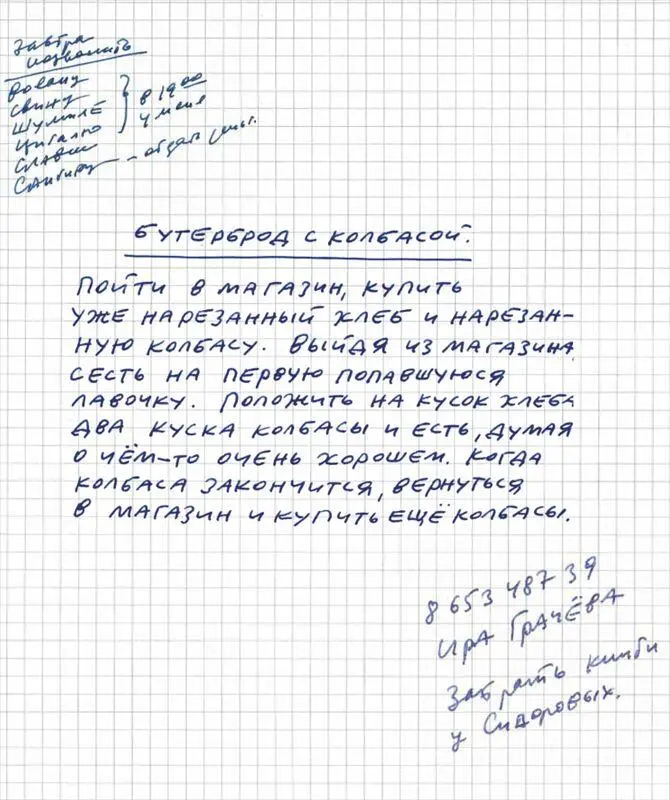 Завтра
позвонить
Вовану
Свину
Шумиле
Цигалю
Славе
} в 19 00
у меня
– отдать
БУТЕРБРОД С КОЛБАСОЙ.
ПОЙТИ В МАГАЗИН, КУПИТЬ
УЖЕ НАРЕЗАННЫЙ ХЛЕБ И НАРЕЗАН-
НУЮ КОЛБАСУ. ВЫЙДЯ ИЗ МАГАЗИНА
СЕСТЬ НА ПЕРВУЮ ПОПАВШУЮСЯ
ЛАВОЧКУ. ПОЛОЖИТЬ НА КУСОК ХЛЕБА
ДВА КУСКА КОЛБАСЫ И ЕСТЬ, ДУМАЯ
О ЧЁМ-ТО ОЧЕНЬ ХОРОШЕМ. КОГДА
КОЛБАСА ЗАКОНЧИТСЯ, ВЕРНУТЬСЯ
В МАГАЗИН И КУПИТЬ ЕЩЁ КОЛБАСЫ.
8 653 487 39
Ира Грачёва
Забрать
у Сидоровых.